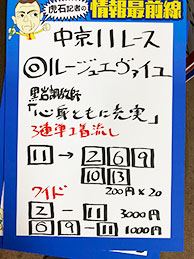 虎石記者の
情報最前線
中京11レース
◎ルージュエヴァイユ
黒岩調教師
「心身ともに充実」
3連単1着流し
11→2 6 9
10 13
200円×20
ワイド
2-11 3000円
9-11 1000円